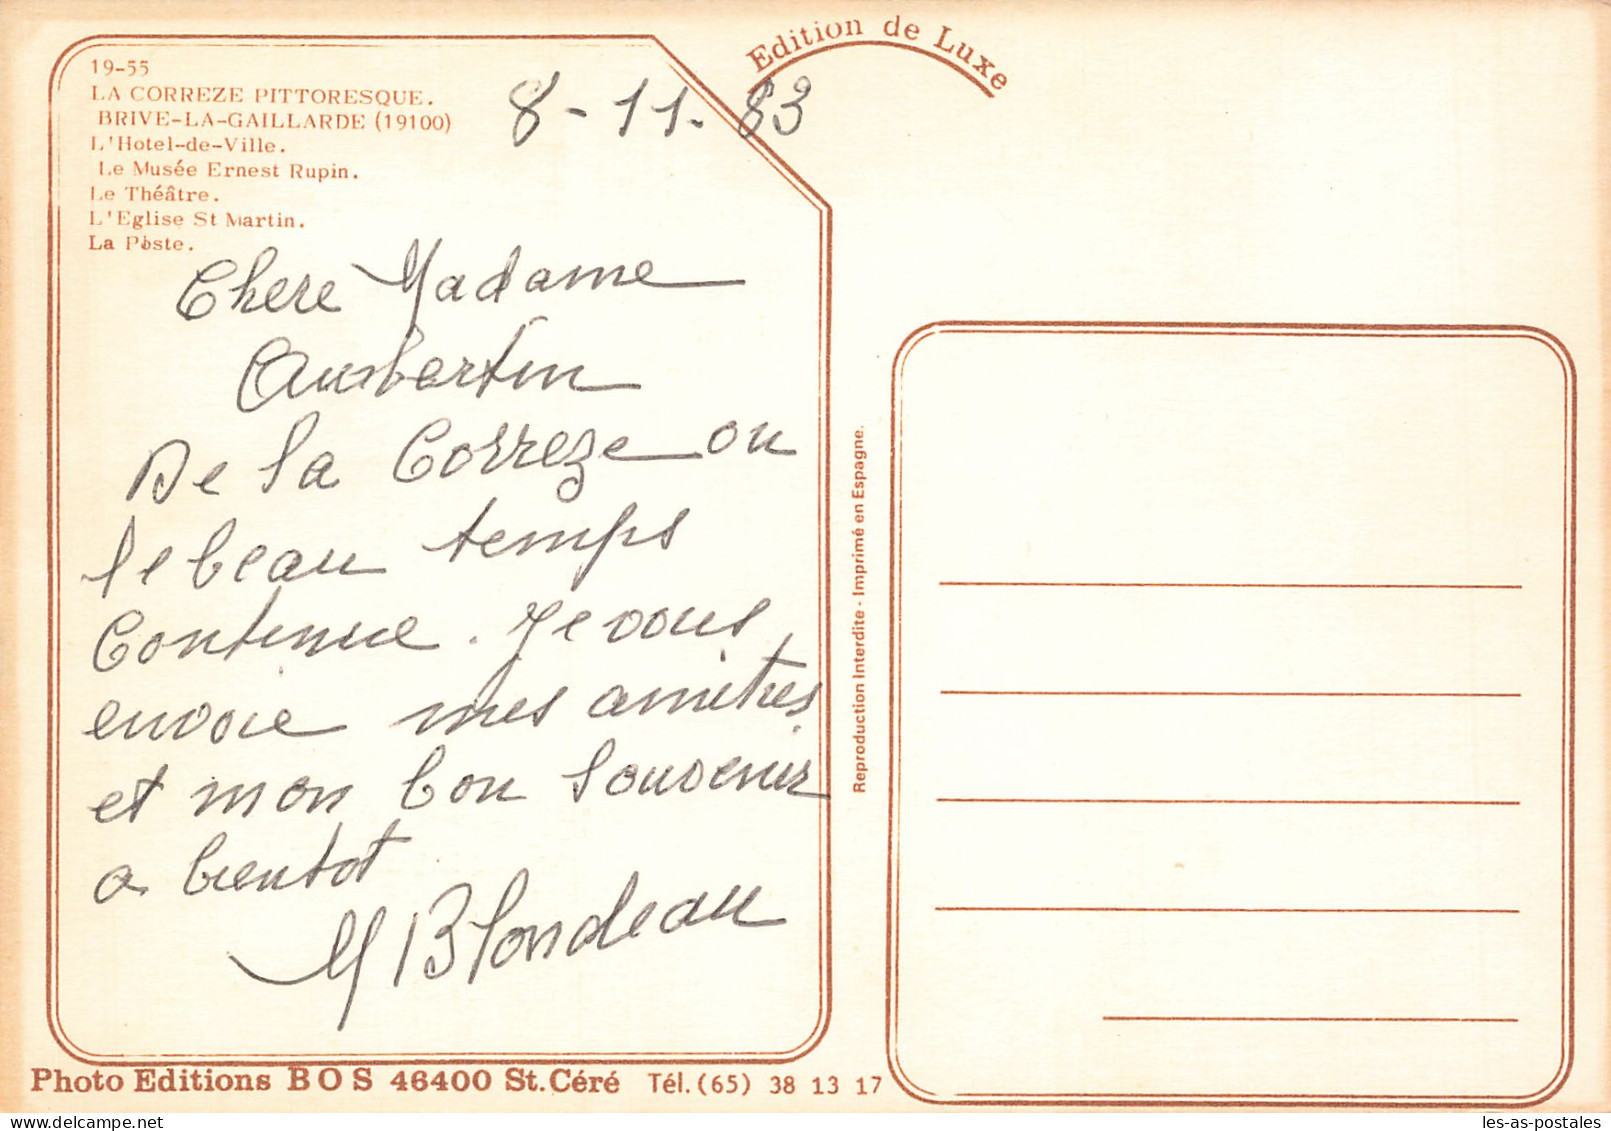 Edition de Luxe
19-55
LA CORREZE PITTORESQUE.
BRIVE-LA-GAILLARDE (19100)
L'Hotel-de-Ville.
Le Musée Ernest Rupin.
Le Théâtre.
L'Eglise St Martin.
La Poste.
8-11-83
Chere Madame
Aubertin
De la Correze ou
le beau temps
Continue. Je vous
envoie mes amitiés
et mon bon souvenir
a bientot
M Blondeau
Reproduction Interdite - Imprimé en Espagne.
Photo Editions BOS 46400 St.Céré Tél.(65) 38 13 17
les-as-postales